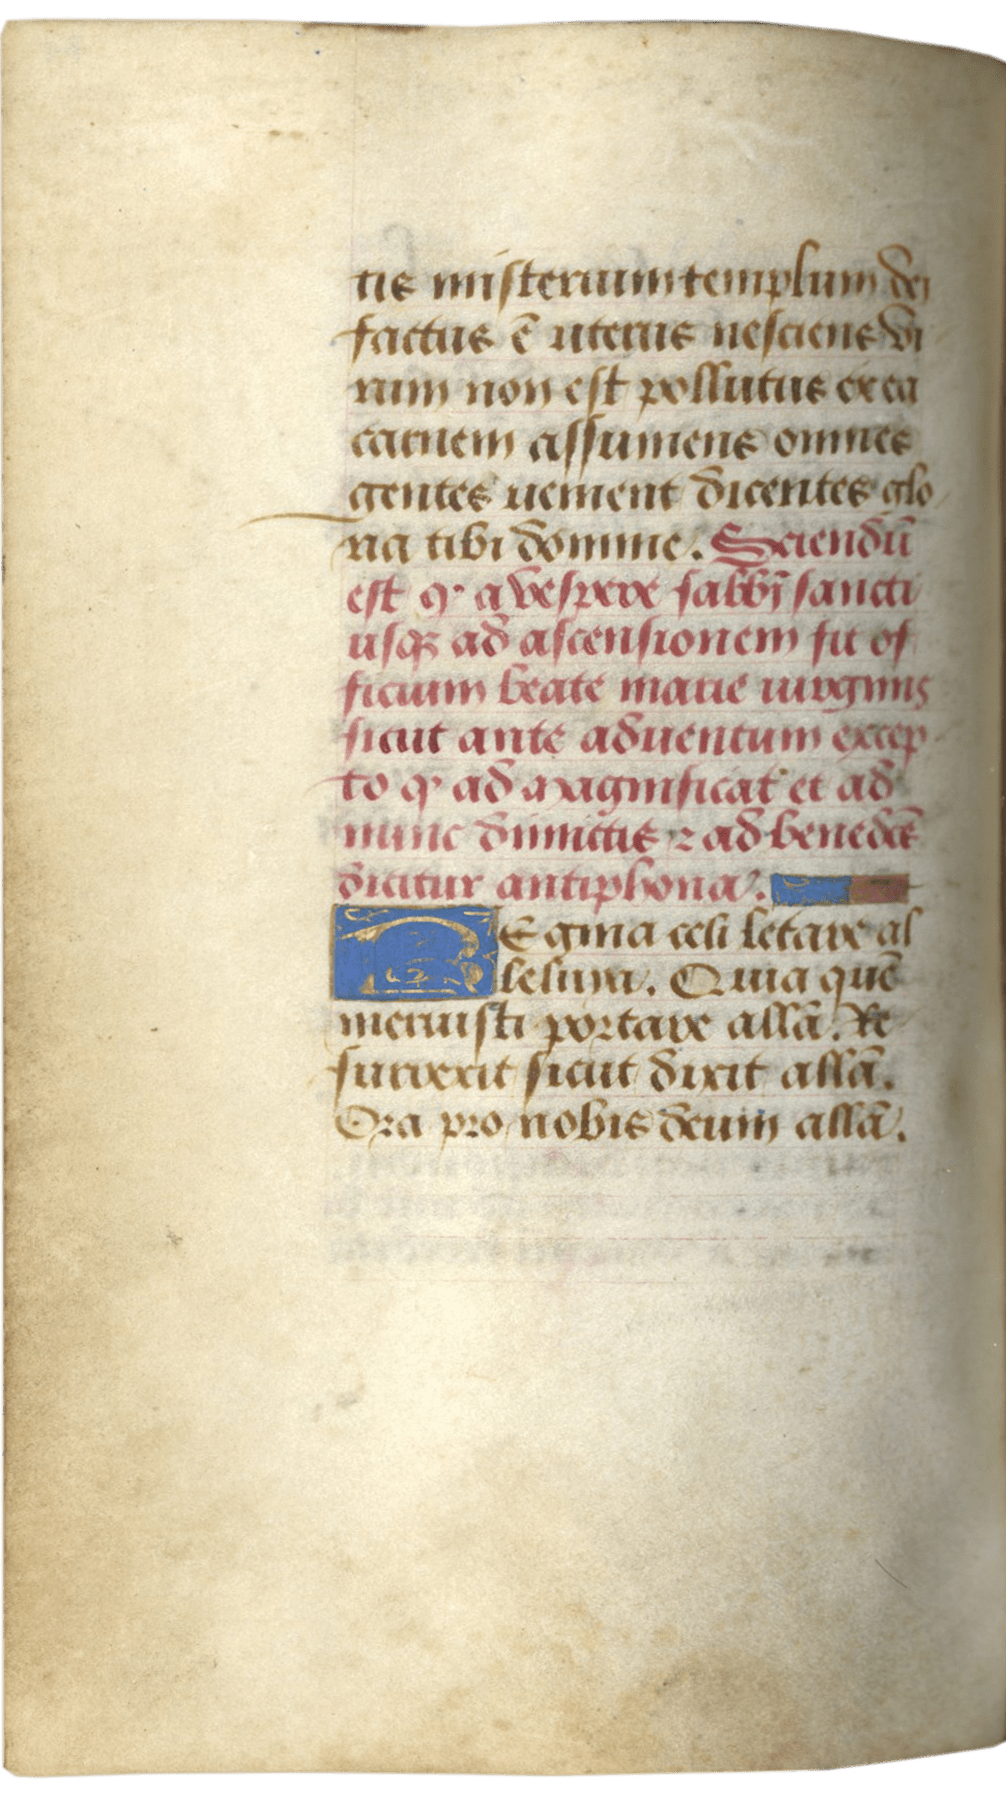 tis misterium templum dei
factus ē uterus nesciens vi
rum non est pollutus ex ea
carnem assumens omnes
gentes uenient dicentes glo
ria tibi domine. Sciendū
est ꝙ a vespere sabbī sancti
usqꝫ ad ascensionem fit of
ficium beate marie uirginis
sicut ante aduentum excep
to ꝙ ad magnificat et ad
nunc dimittis ⁊ ad benedcēs
dicitur antiphona.
REgina celi letare al
leluya. Quia quē
meruisti portare allā. Re
surrexit sicut dixit allā.
Ora pro nobis deum allā.